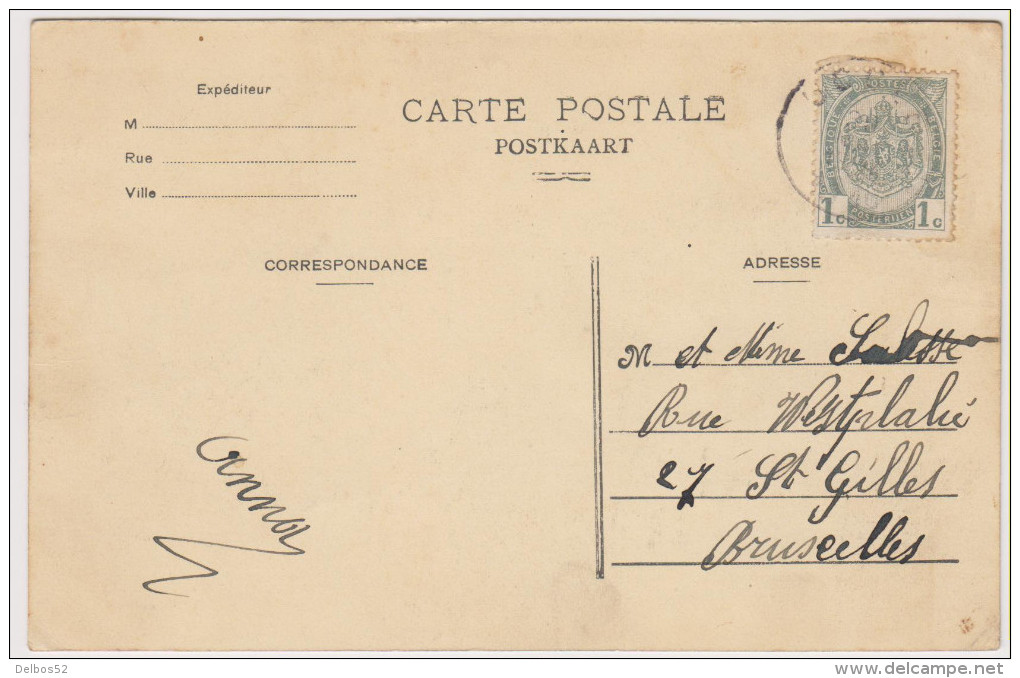 Expéditeur
M
Rue
Ville
CARTE POSTALE
POSTKAART
POSTES
BELGIQUE
BELGIË
POSTERIJEN
1c 1c
CORRESPONDANCE
ADRESSE
M et Mme
Rue Westphalie
27 St Gilles
Bruxelles
Delbos52
www.delcampe.net